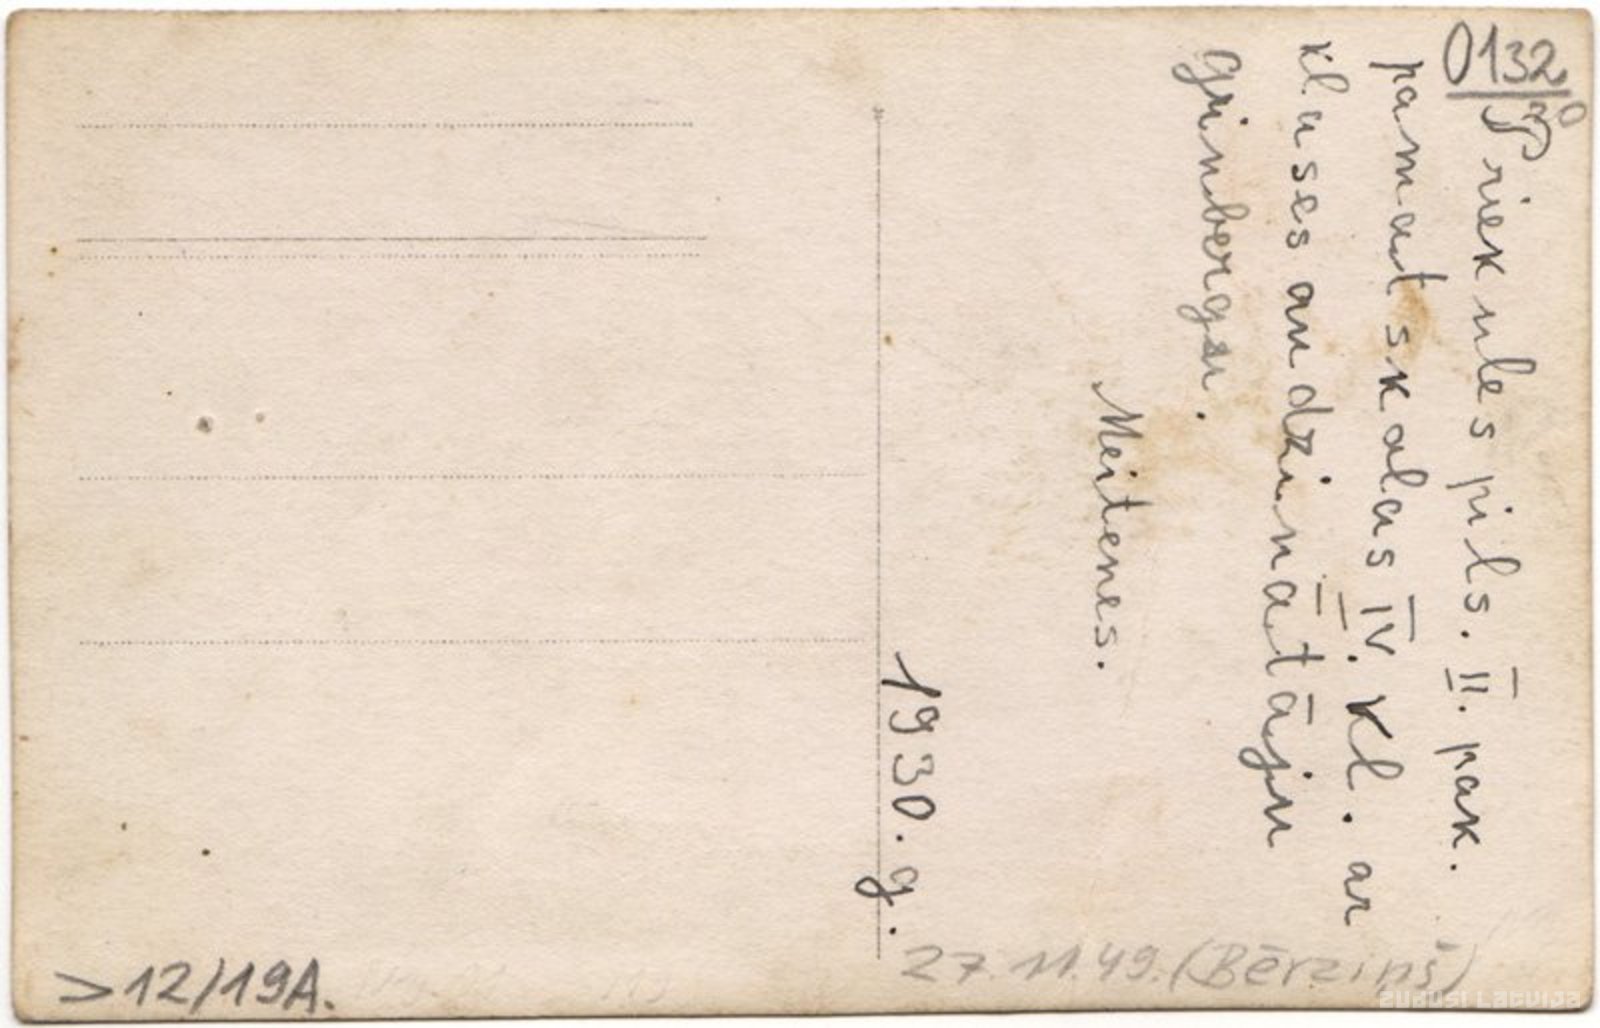 0132
30
Priekules pils. II. pak.
pamatskolas IV. kl. ar
klases audzinātāju
Grinbergu.
Meitenes.
1930. g.
27.11.49. (Bērziņš)
>12/19A.
zudusi Latvija